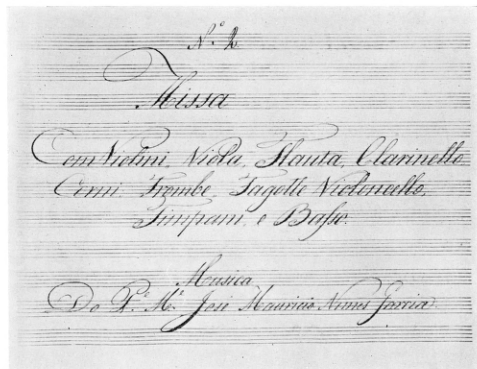 N.º 2
Missa
Com Violini, Viola, Flauta, Clarinetto,
Corni, Trombe, Fagotte Violoncello,
Timpani, e Basso.
Musica
Do P.º M.º José Mauricio Nunes Garcia